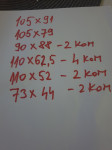 105 x 91
105 x 79
90 x 88 - 2 kom
110 x 62,5 - 4 kom
110 x 52 - 2 kom
73 x 44 - 2 kom